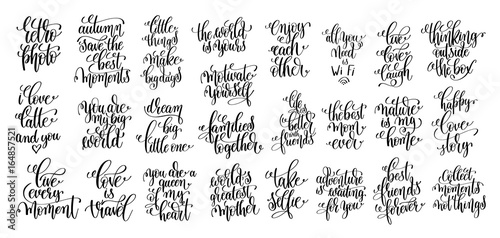 retro
photo
autumn
save the
best
moments
little
things
make
big days
the world
is yours
motivate
yourself
enjoy
each
other
all you
need
is
Wi Fi
live
love
laugh
thinking
outside
the box
i love
latte
and you
you are
my big
world
dream
big
little one
families
together
life
is
better
with
friends
the best
mom
ever
nature
is my
home
happy
love
story
live
every
moment
love
is
travel
you are a
queen
of my
heart
world's
greatest
mother
take
selfie
adventure
is waiting
for you
best
friends
forever
collect
moments
not things
164857521